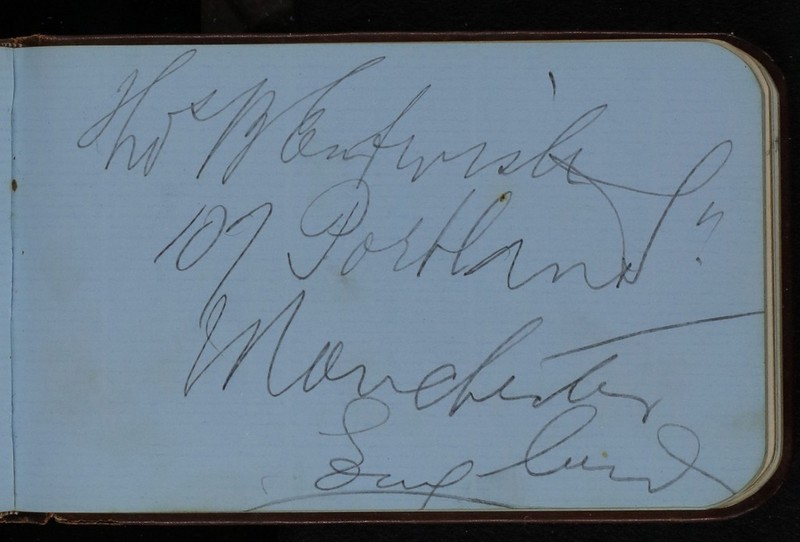 Thos B Entwisle
107 Portland St
Manchester
England